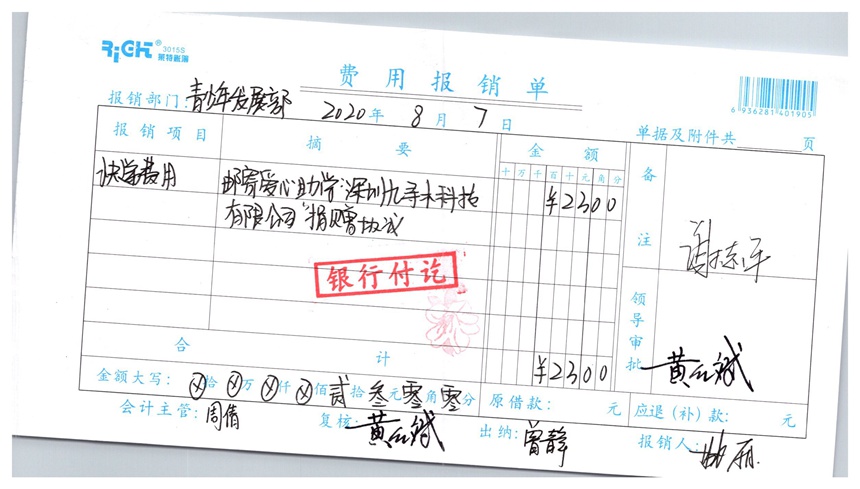 RiGHT® 3015S
莱特账簿
费用报销单
6 936281 401905
报销部门:青少年发展部 2020年 8月 7日 单据及附件共 页
报销项目 摘要 金额 备注
十 万 千 百 十 元 角 分
助学费用 邮寄爱心助学:深圳九 木科技 ¥2300
有限公司 捐赠
银行付讫
领导审批 黄 斌
合计 ¥2300
金额大写: ⊗拾 ⊗万 ⊗仟 ⊗佰 贰拾 叁元 零角 零分 原借款: 元 应退(补)款: 元
会计主管:周倩 复核:黄 斌 出纳:曾静 报销人: